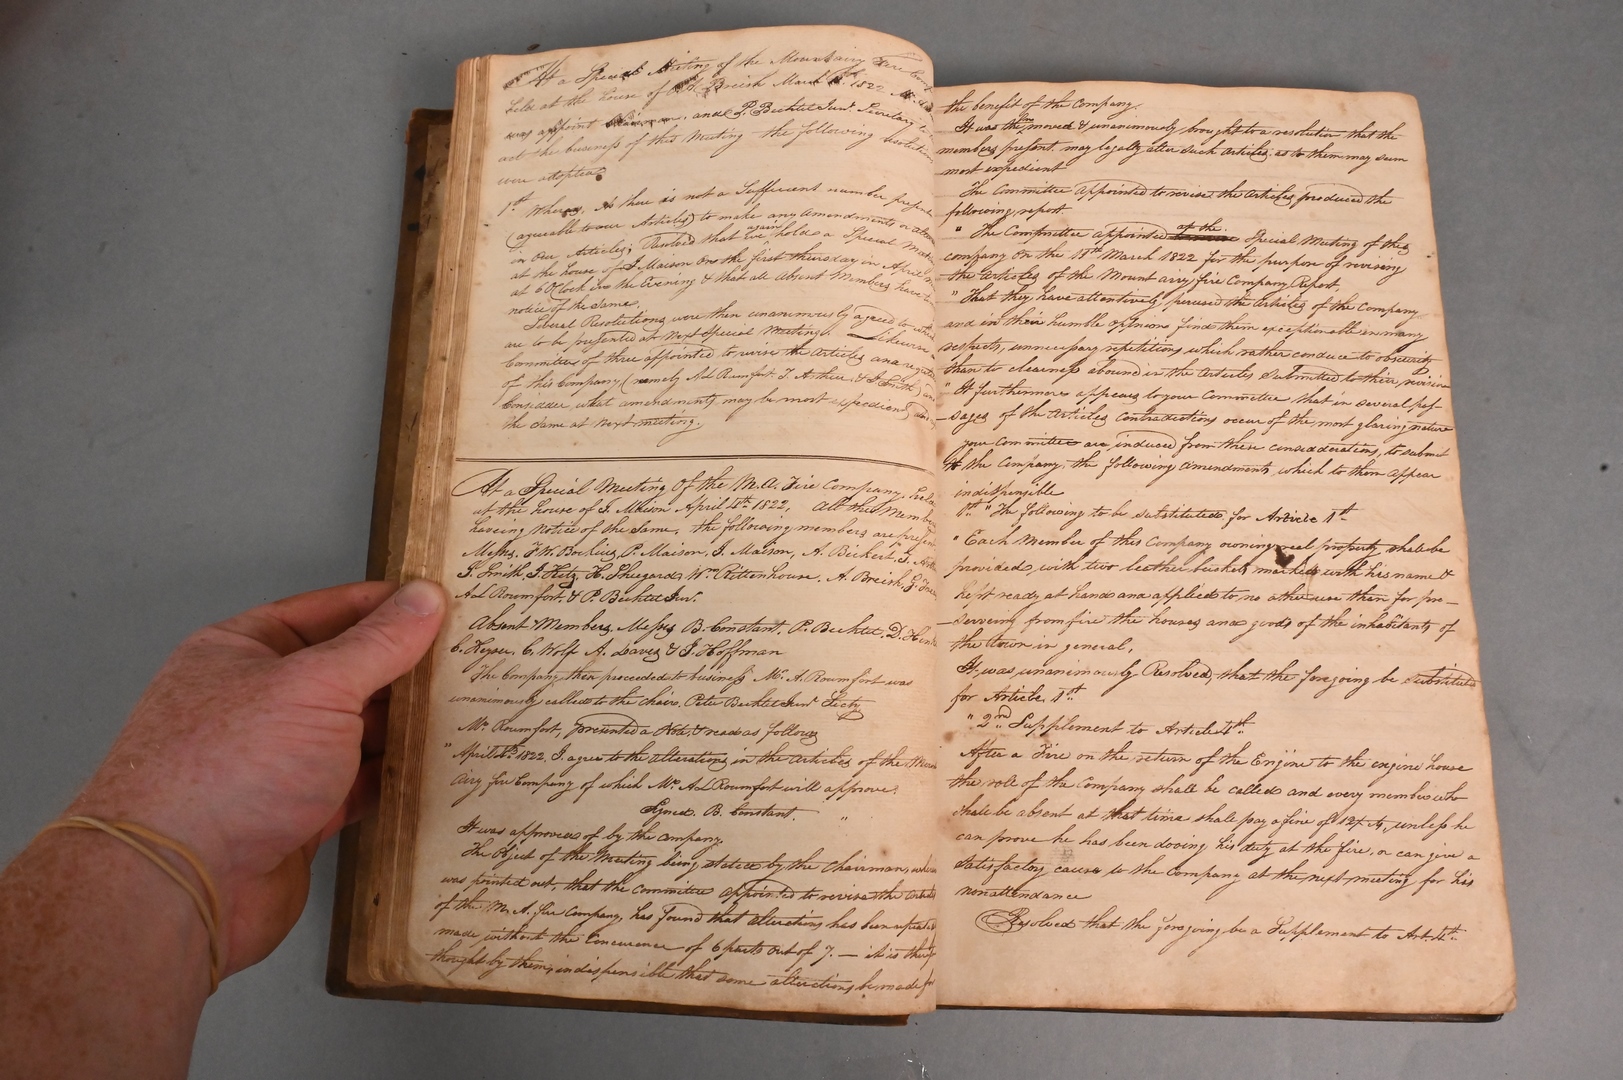 At a Special Meeting of the Mountairy Fire Com
held at the house of Breish March 1822
was appoint Chairman, and P. Bechtel Junr. Secretary to
act the business of this Meeting the following
were adopted
1st Whereas, As there is not a Sufficient number present
(agreeable to our Articles) to make any amendments or
in Our Articles; Resolved that we again hold a Special
at the house of J. Maison on the first thursday in April
at 6 OClock in the Evening & that all Absent Members have
notice of the same.
Several Resolutions were then unanimously agreed to which
are to be presented at Next Special Meeting. Likewise
Committee of three appointed to revise the Articles and
of this Company (namely Al Roumfort J. Arthur & J. Smith) and
Consider what amendments may be most expedient,
the Same at Next meeting.
At a Special Meeting Of the M.A. Fire Company, held
at the house of J. Maison April 4th 1822, All the Members
having Notice of the Same. the following members are present
Messrs. F.W. Bockius, P. Maison, J. Maison, A. Bickert, J.
J. Smith, J. H. Sheegard, Wm. Rittenhouse, A. Breish, G.
Al Roumfort & P. Bechtel Junr.
Absent Members, Messrs B. Constant, P. Bechtel, D.
C. Keyser, C. Wolf A. Davis & J. Hoffman
The Company then proceeded to business, Mr. A. Roumfort was
unanimously called to the chair, Peter Bechtel Junr Secty
Mr Roumfort, presented a Note, & read as follows
" April 4th 1822, I agree to the alterations in the Articles of the Mount
Airy fire Company of which Mr. Al Roumfort will approve.
Signed B. Constant. "
It was approved of by the company
The Object of the Meeting being stated by the Chairman,
was pointed out, that the Committee appointed to revise the
of the M. A. fire Company, has found that alterations has been
made, without the Concurence of 6 parts out of 7. — it is
thought by them, indispensible that some alterations be made for
the benefit of the Company.
It was then moved & unanimously brought to a resolution that the
members present. may legally alter such Articles, as to them may seem
most expedient
The Committee appointed to revise the Articles produced the
following report.
" The Committee appointed at the Special Meeting of the
company on the 18th March 1822 for the purpose of revising
the Articles of the Mount airy fire Company Report,
" That they have attentively perused the Articles of the Company
and in their humble opinion find them exceptionable in many
respects, unnecessary repetitions which rather conduce to obscurity
than to clearness abound in the Articles Submitted to their revision
" It furthermore appears to your Committee that in several pas-
sages of the Articles Contradictions occur of the most glaring nature
your Committee are induced from these considerations, to submit
to the Company, the following amendments, which to them appear
indispensible
1st " The following to be substituted for Article 1st
" Each Member of this Company owning real property shall be
provided with two leather buckets marked with his name &
kept ready at hand and applied to no other use than for pre-
serveing from fire the houses and goods of the inhabitants of
the town in general,
It was unanimously Resolved, that the foregoing be substituted
for Article 1st
" 2nd Supplement to Article 4th
After a Fire on the return of the Engine to the engine house
the role of the Company shall be called and every member who
shall be absent at that time shall pay a fine of 12½ cts, unless he
can prove he has been doing his duty at the fire, or can give a
satisfactory cause to the Company at the next meeting for his
nonattendance
Resolved that the foregoing be a Supplement to Art. 4th.